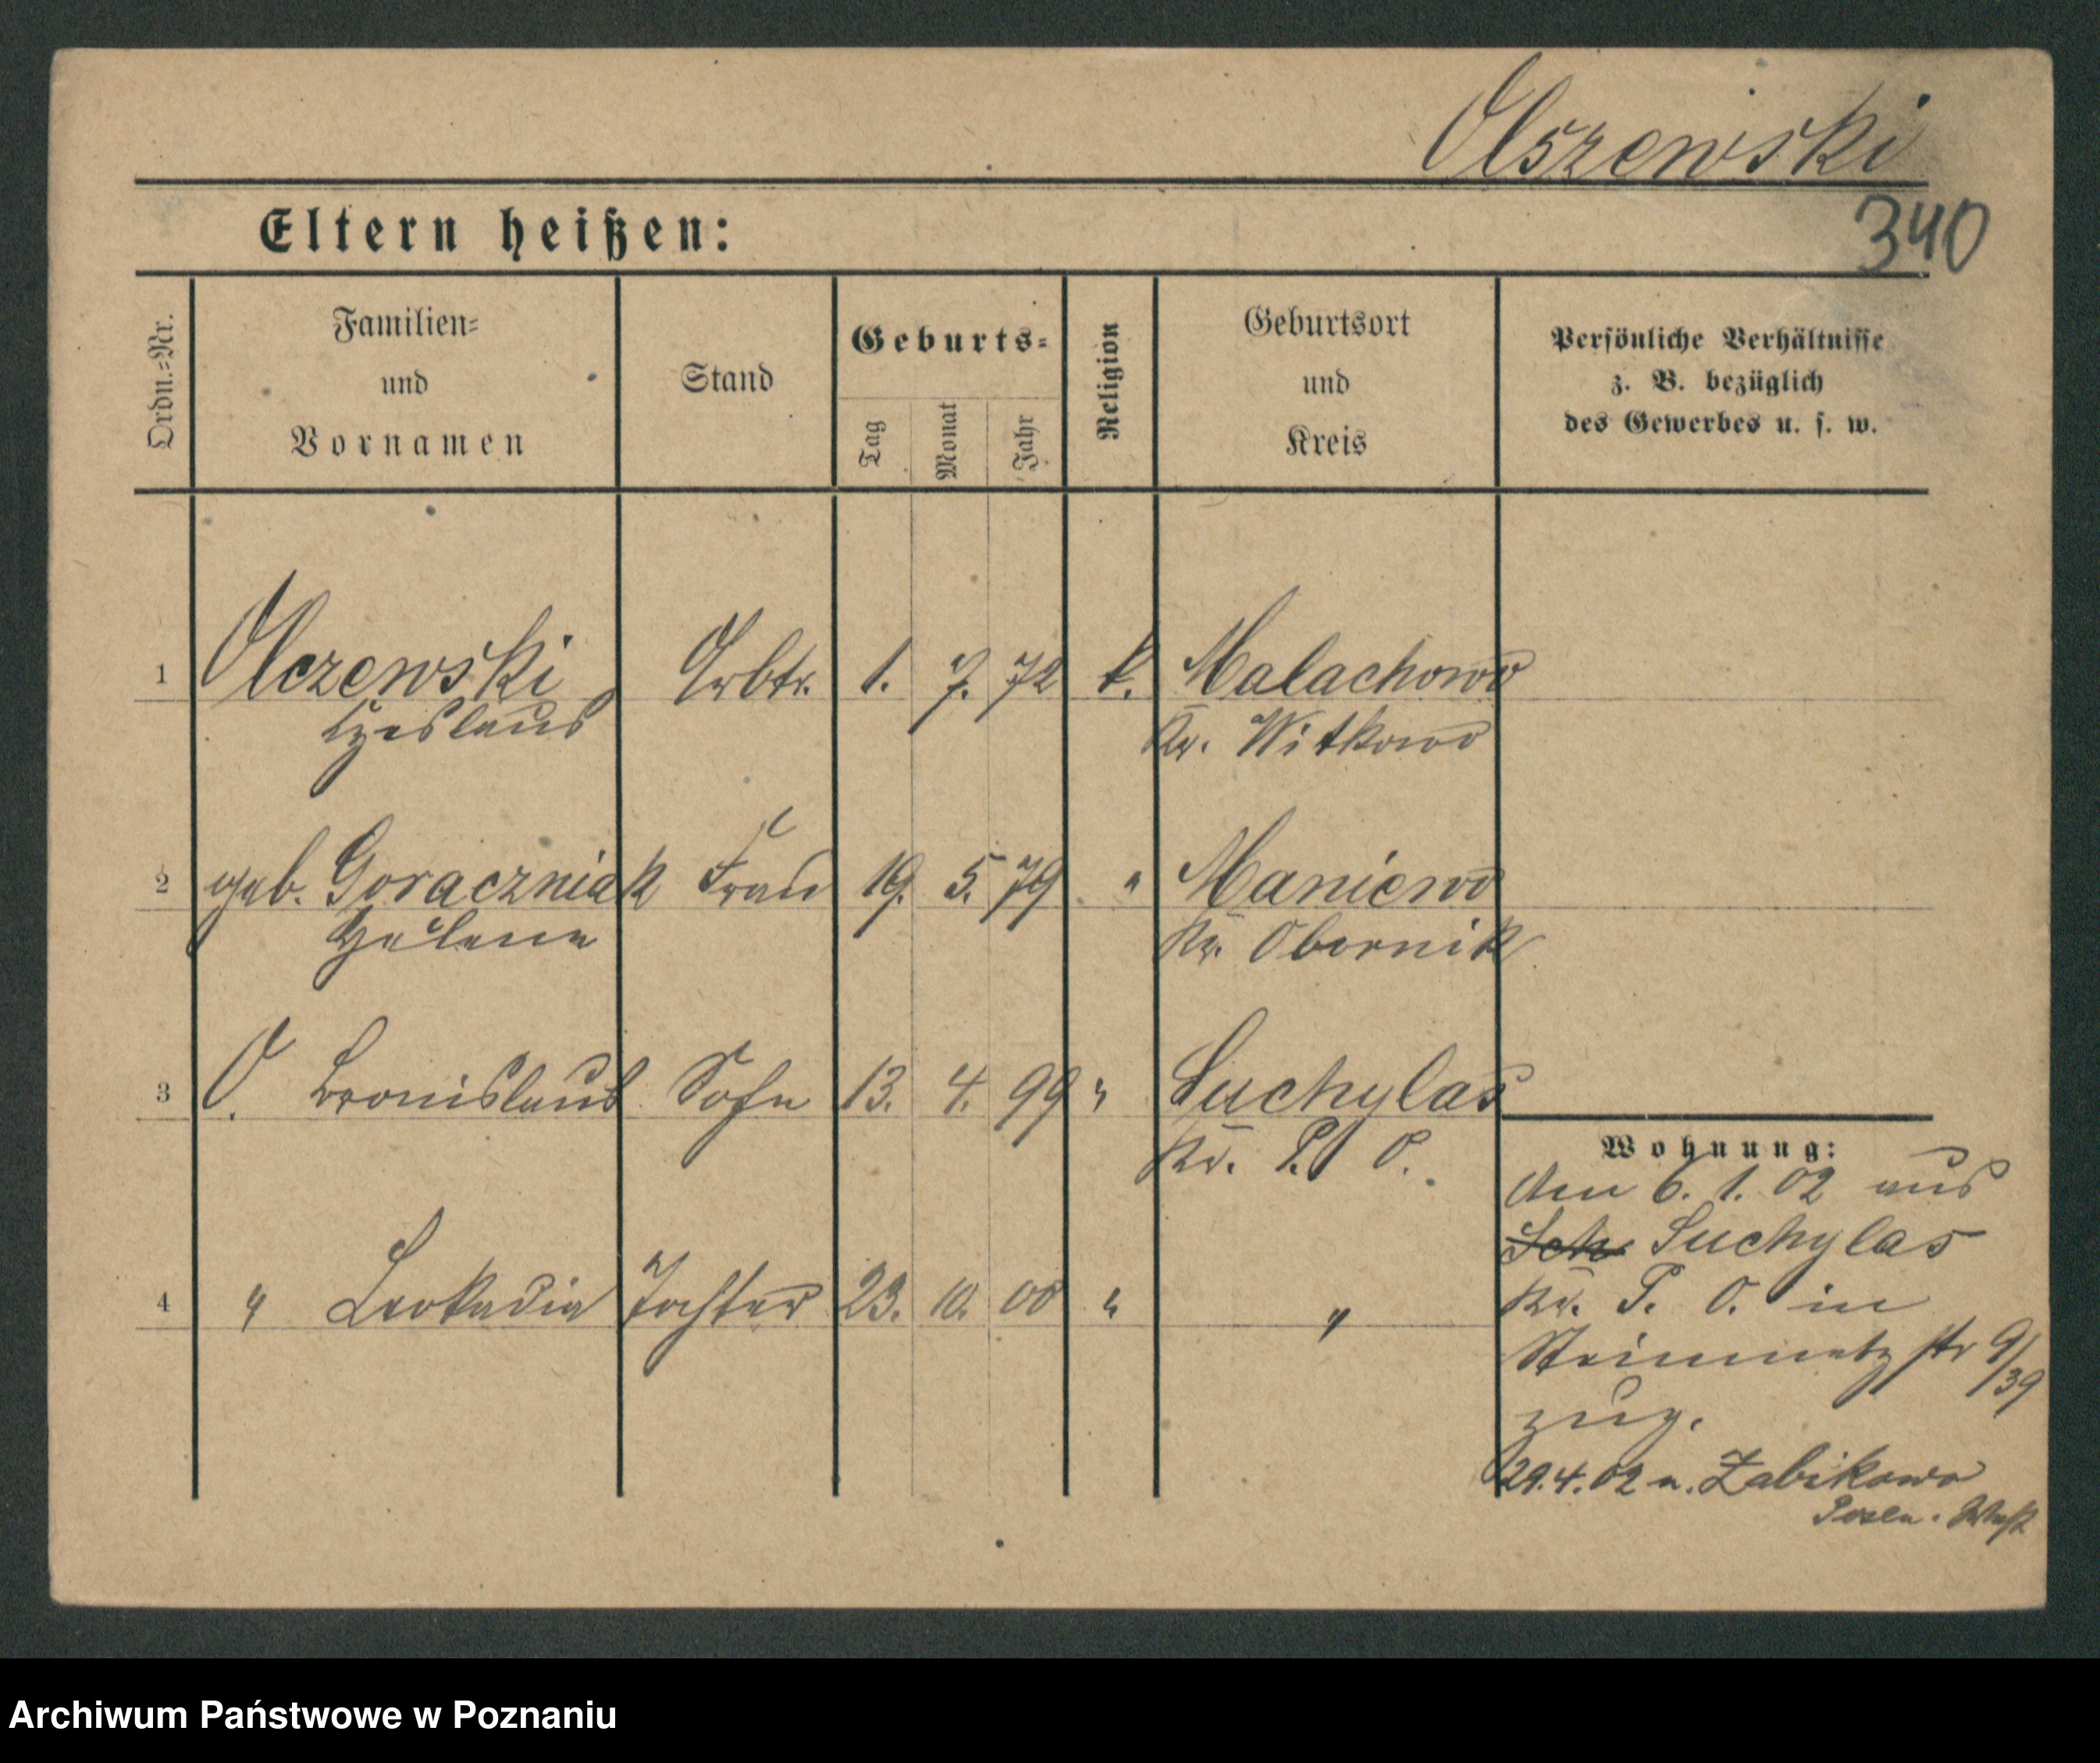 Olszewski
340
Eltern heißen:
Ordn.-Nr.
Familien-
und
Vornamen
Stand
Geburts-
Tag
Monat
Jahr
Religion
Geburtsort
und
Kreis
Persönliche Verhältnisse
z. B. bezüglich
des Gewerbes u. s. w.
1 Olczewski Arbtr. 1. 7. 72 k. Malachowo
Kr. Witkowo
2 geb. Goraczniak Frau 19. 5. 79 " Maniewo
Helene Kr. Obornik
3 O. Bronislaus Sohn 13. 4. 99 " Suchylas
Kr. P. O.
4 " Leokadia Tochter 23. 10. 00 " "
Wohnung:
Am 6. 1. 02 aus
Sch Suchylas
Kr. P. O. in
Steinmetzstr 9/39
zug.
29.4.02 n. Zabikowo
Posen. West
Archiwum Państwowe w Poznaniu